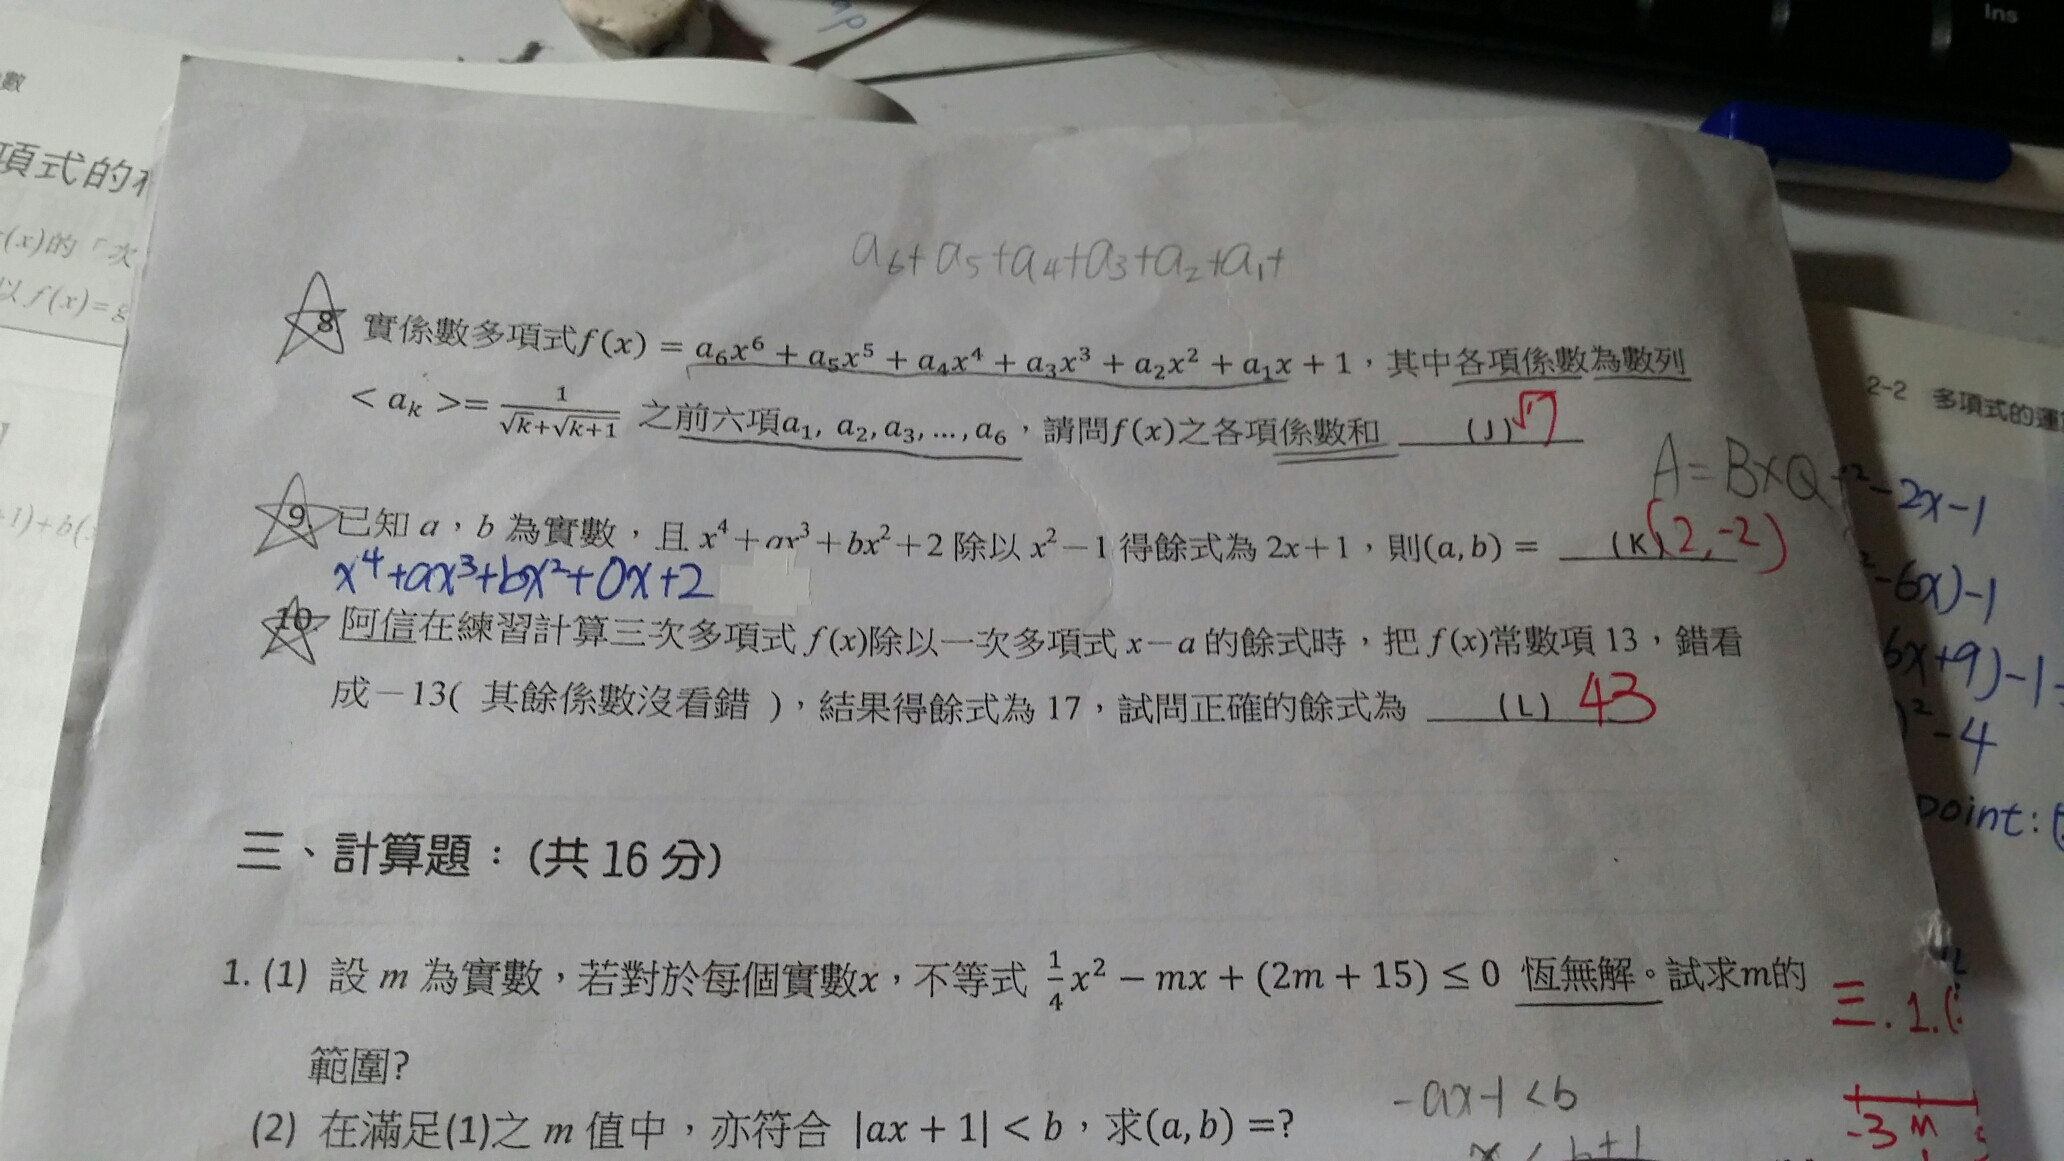 Ins
數
項式的
(x)的「次
以 f(x)=g
+1)+b(
a₆+a₅+a₄+a₃+a₂+a₁+
8. 實係數多項式f(x) = a₆x⁶ + a₅x⁵ + a₄x⁴ + a₃x³ + a₂x² + a₁x + 1，其中各項係數為數列
< aₖ >= 1/(√k+√k+1) 之前六項a₁, a₂, a₃, …, a₆，請問f(x)之各項係數和 (J) √7
A=B×Q+
9. 已知 a，b 為實數，且 x⁴+ax³+bx²+2 除以 x²−1 得餘式為 2x+1，則(a,b) = (K) (2,-2)
x⁴+ax³+bx²+0x+2
10. 阿信在練習計算三次多項式 f(x)除以一次多項式 x−a 的餘式時，把 f(x)常數項 13，錯看
成−13( 其餘係數沒看錯 )，結果得餘式為 17，試問正確的餘式為 (L) 43
三、計算題：(共 16 分)
1. (1) 設 m 為實數，若對於每個實數x，不等式 1/4 x² − mx + (2m + 15) ≤ 0 恆無解。試求m的
範圍?
(2) 在滿足(1)之 m 值中，亦符合 |ax + 1| < b，求(a, b) =?
-ax-1<b
x < b+1
2-2 多項式的運
²-2x-1
-6x)-1
6x+9)-1-
)²-4
point:
三.1.(
-3 m